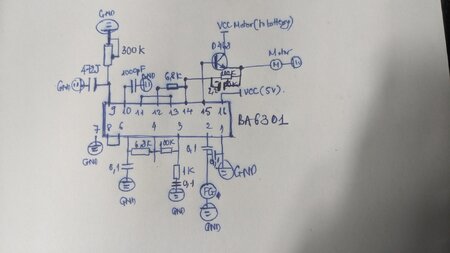 GND
VCC Motor (to battery)
D468
Motor
M
300K
472J
GND
1000pF
GND
6,8K
VCC (5V).
9 10 11 12 13 14 15 16
BA6301
7 8 6 4 3 2 1
GND
6,8K
100K
0,1
0,1
GND
0,1
1K
0,1
FG
GND
GND
GND